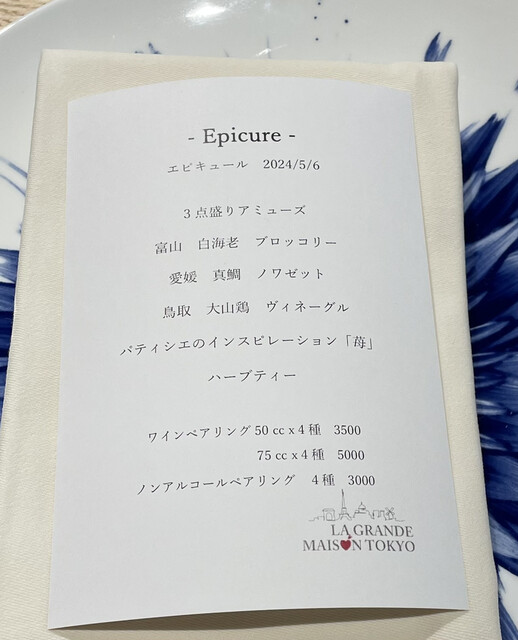 - Epicure -
エピキュール 2024/5/6
３点盛りアミューズ
富山 白海老 ブロッコリー
愛媛 真鯛 ノワゼット
鳥取 大山鶏 ヴィネーグル
パティシエのインスピレーション「苺」
ハーブティー
ワインペアリング 50 cc x 4 種 3500
75 cc x 4 種 5000
ノンアルコールペアリング 4 種 3000
LA GRANDE
MAISON TOKYO